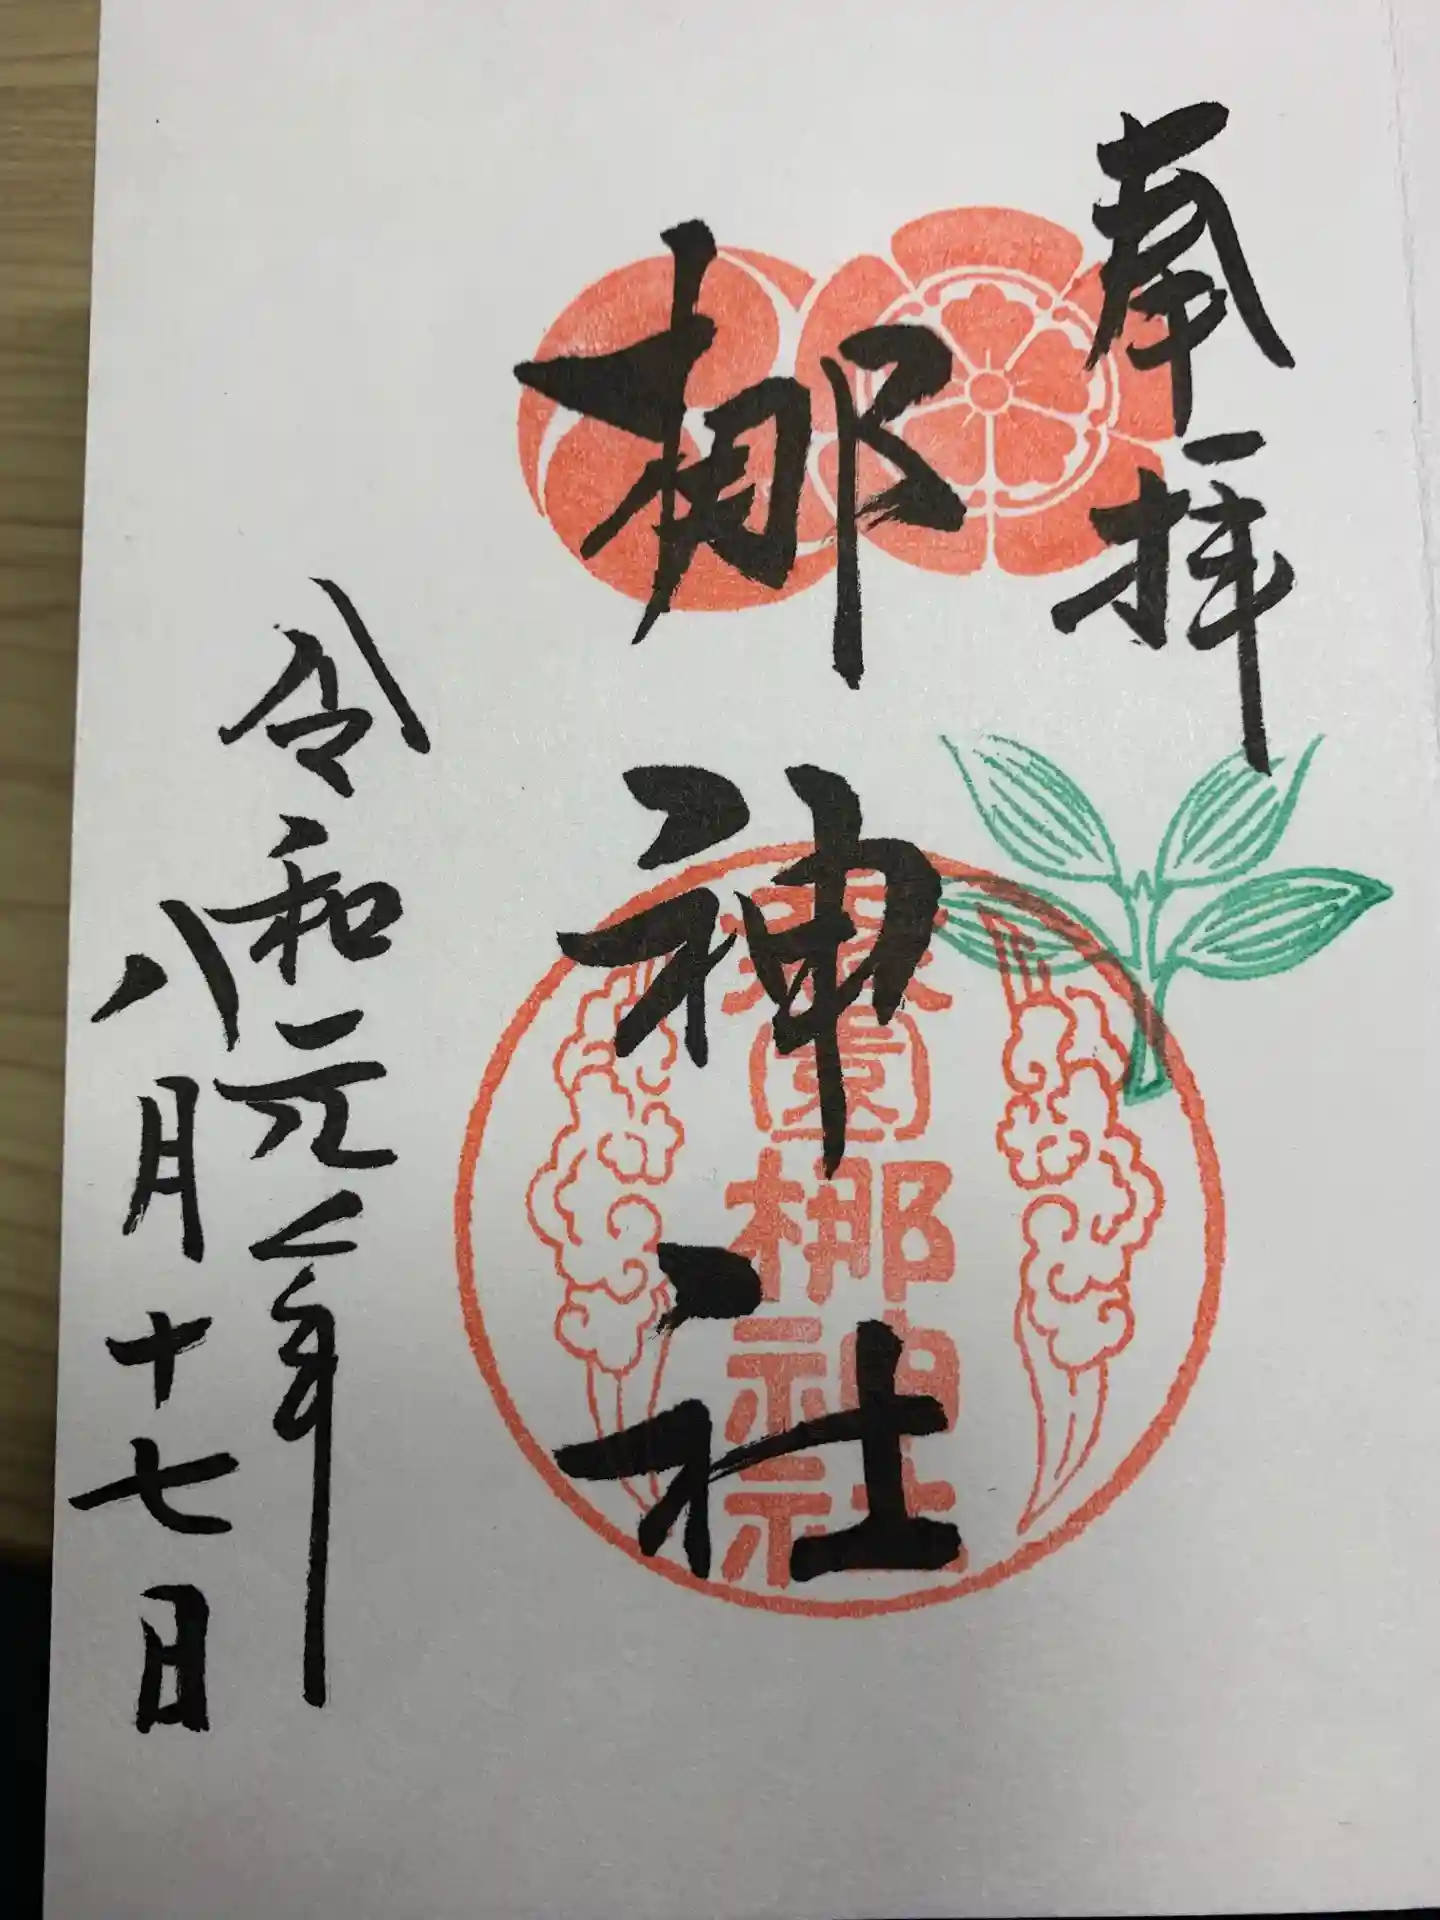 奉拝
梛神社
元祇園梛神社
令和元年
八月十七日